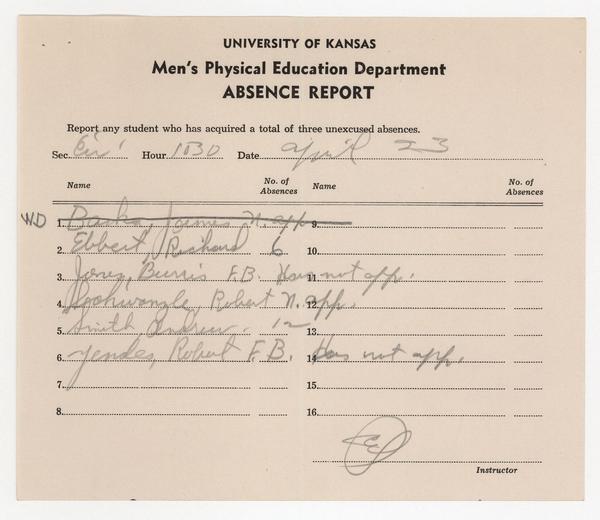 UNIVERSITY OF KANSAS
Men's Physical Education Department
ABSENCE REPORT
Report any student who has acquired a total of three unexcused absences.
Sec. Hour 1030 Date April 23
Name No. of Absences Name No. of Absences
WD 1. James N. app 9.
2. Ebbert, Richard 6 10.
3. Jones, Burris F.B. Has not app. 11.
4. Robert N. app. 12.
5. Smith, Andrew. 12 13.
6. Yender, Robert F.B. Has not app. 14
7. 15.
8. 16.
Instructor